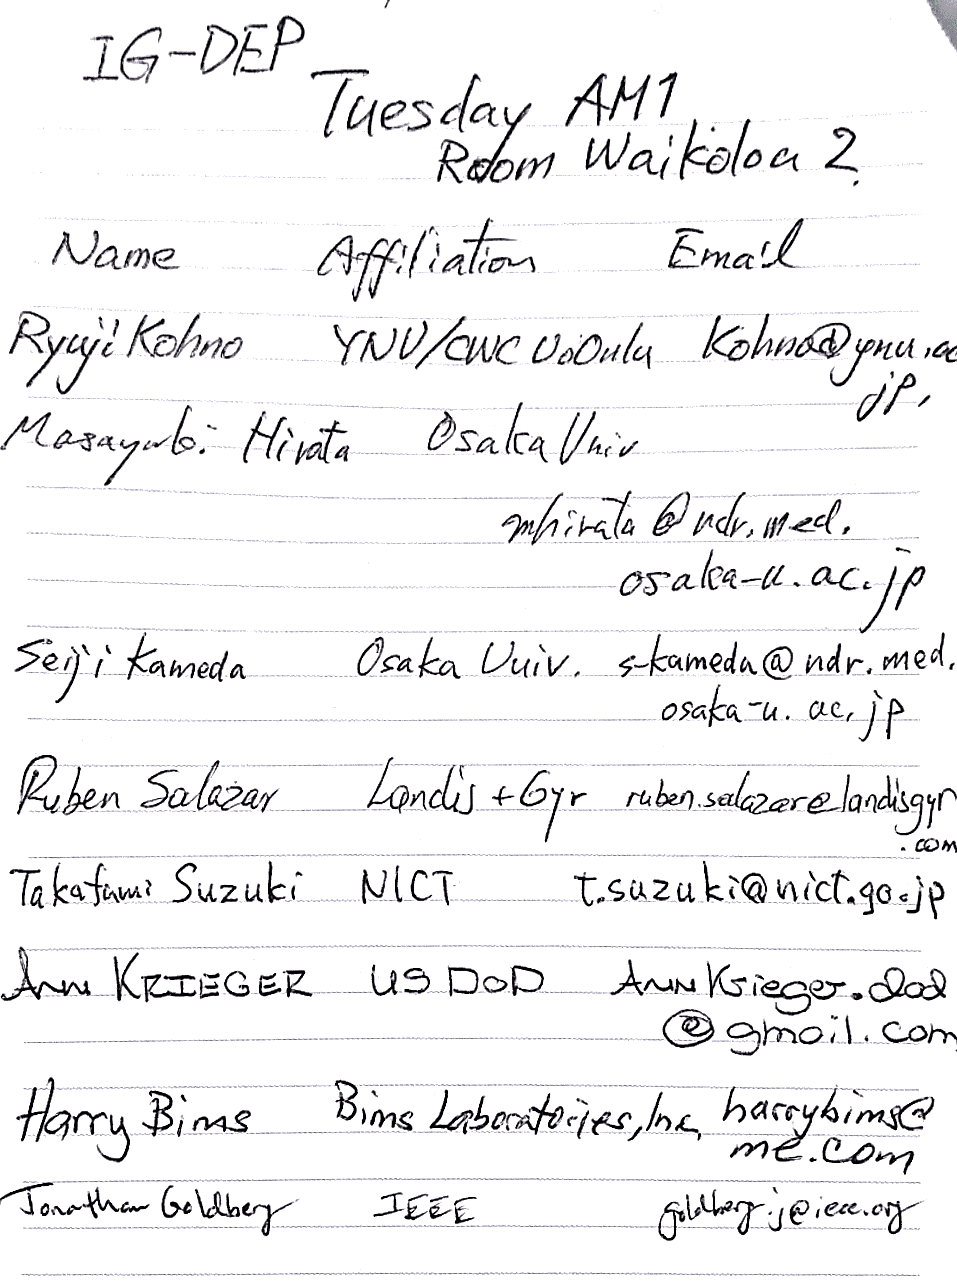 IG-DEP
Tuesday AM1
Room Waikoloa 2
Name Affiliation Email
Ryuji Kohno YNU/CWC UoOulu Kohno@ynu.ac
jp.
Masayuki Hirata Osaka Univ
mhirata@ndr.med.
osaka-u.ac.jp
Seiji Kameda Osaka Univ. s-kameda@ndr.med.
osaka-u.ac.jp
Ruben Salazar Landis+Gyr ruben.salazar@landisgyr
.com
Takafumi Suzuki NICT t.suzuki@nict.go.jp
Ann KRIEGER US DoD AnnKrieger.dod
@gmail.com
Harry Bims Bims Laboratories, Inc. harrybims@
me.com
Jonathan Goldberg IEEE goldberg.j@ieee.org